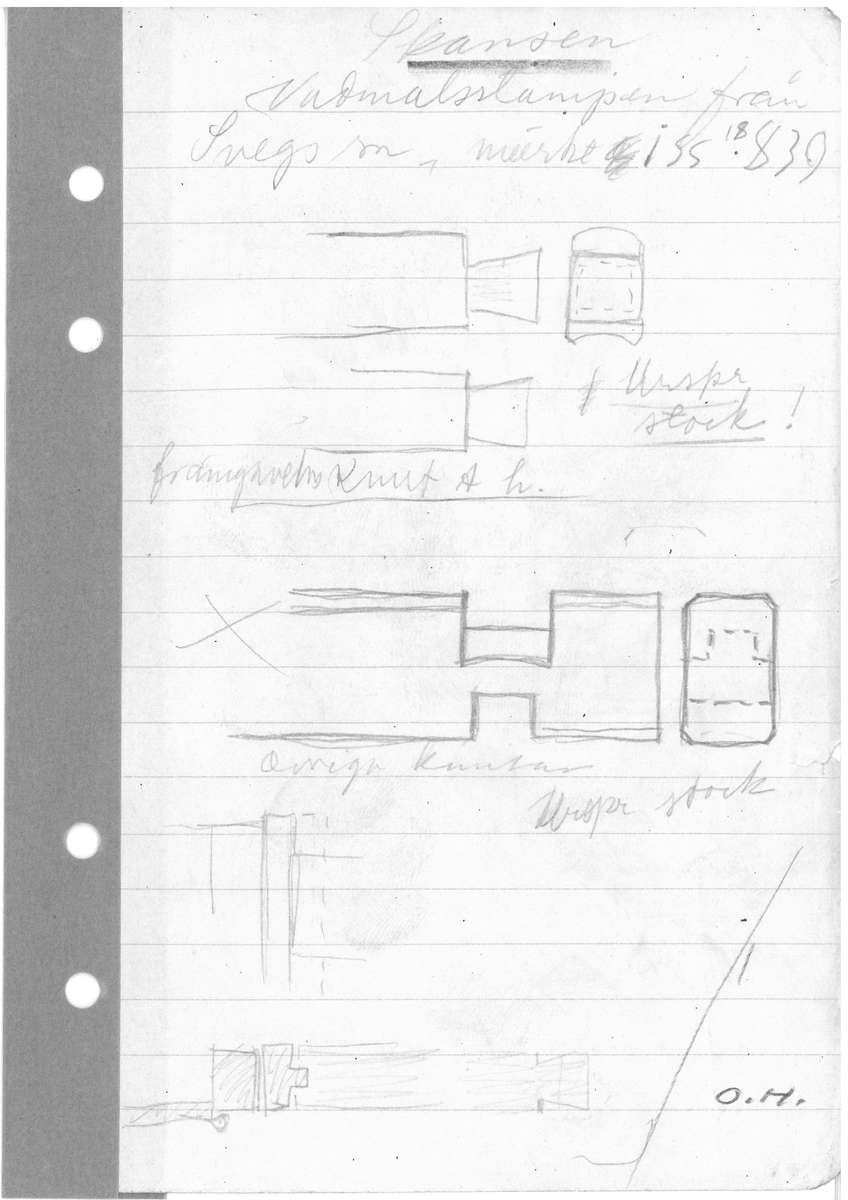 Skansen
Vadmalsstampen från
Svegs sn, märkt iss 18 839
Urspr
stock!
framgavelns knut t h.
övriga knutar
Urspr stock
O.H.